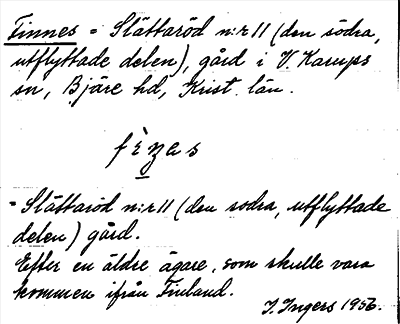 Finnes = Slättaröd n:r 11 (den södra,
utflyttade delen), gård i V. Karups
sn, Bjäre hd, Krist. län.
fìnes
= Slättaröd n:r 11 (den södra, utflyttade
delen) gård.
Efter en äldre ägare, som skulle vara
kommen ifrån Finland.
I. Ingers 1956.